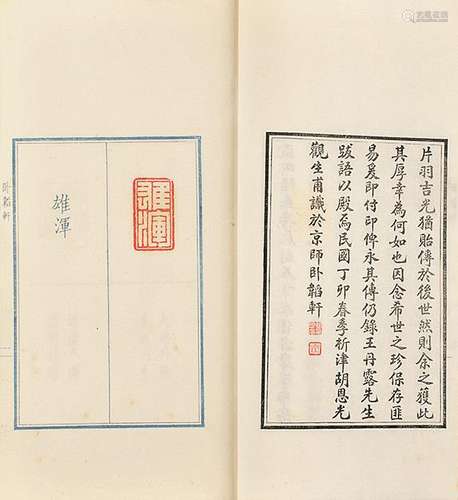 片羽吉光猶貽傳於後世然則余之獲此
其厚幸為何如也因念希世之珍保存匪
易爰即付印俾永其傳仍錄王丹露先生
跋語以殿焉民國丁卯春季析津胡恩光
觀生甫識於京師卧韜軒
雄渾
雄渾
卧韜軒